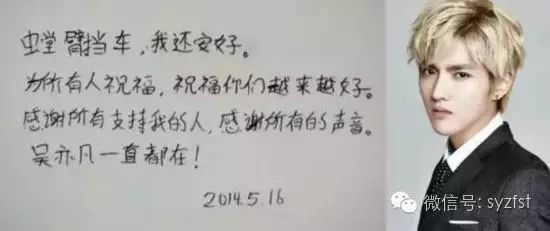 虫堂臂挡车，我还安好。
为所有人祝福，祝福你们越来越好。
感谢所有支持我的人，感谢所有的声音。
吴亦凡一直都在！
2014.5.16
微信号: syzfst